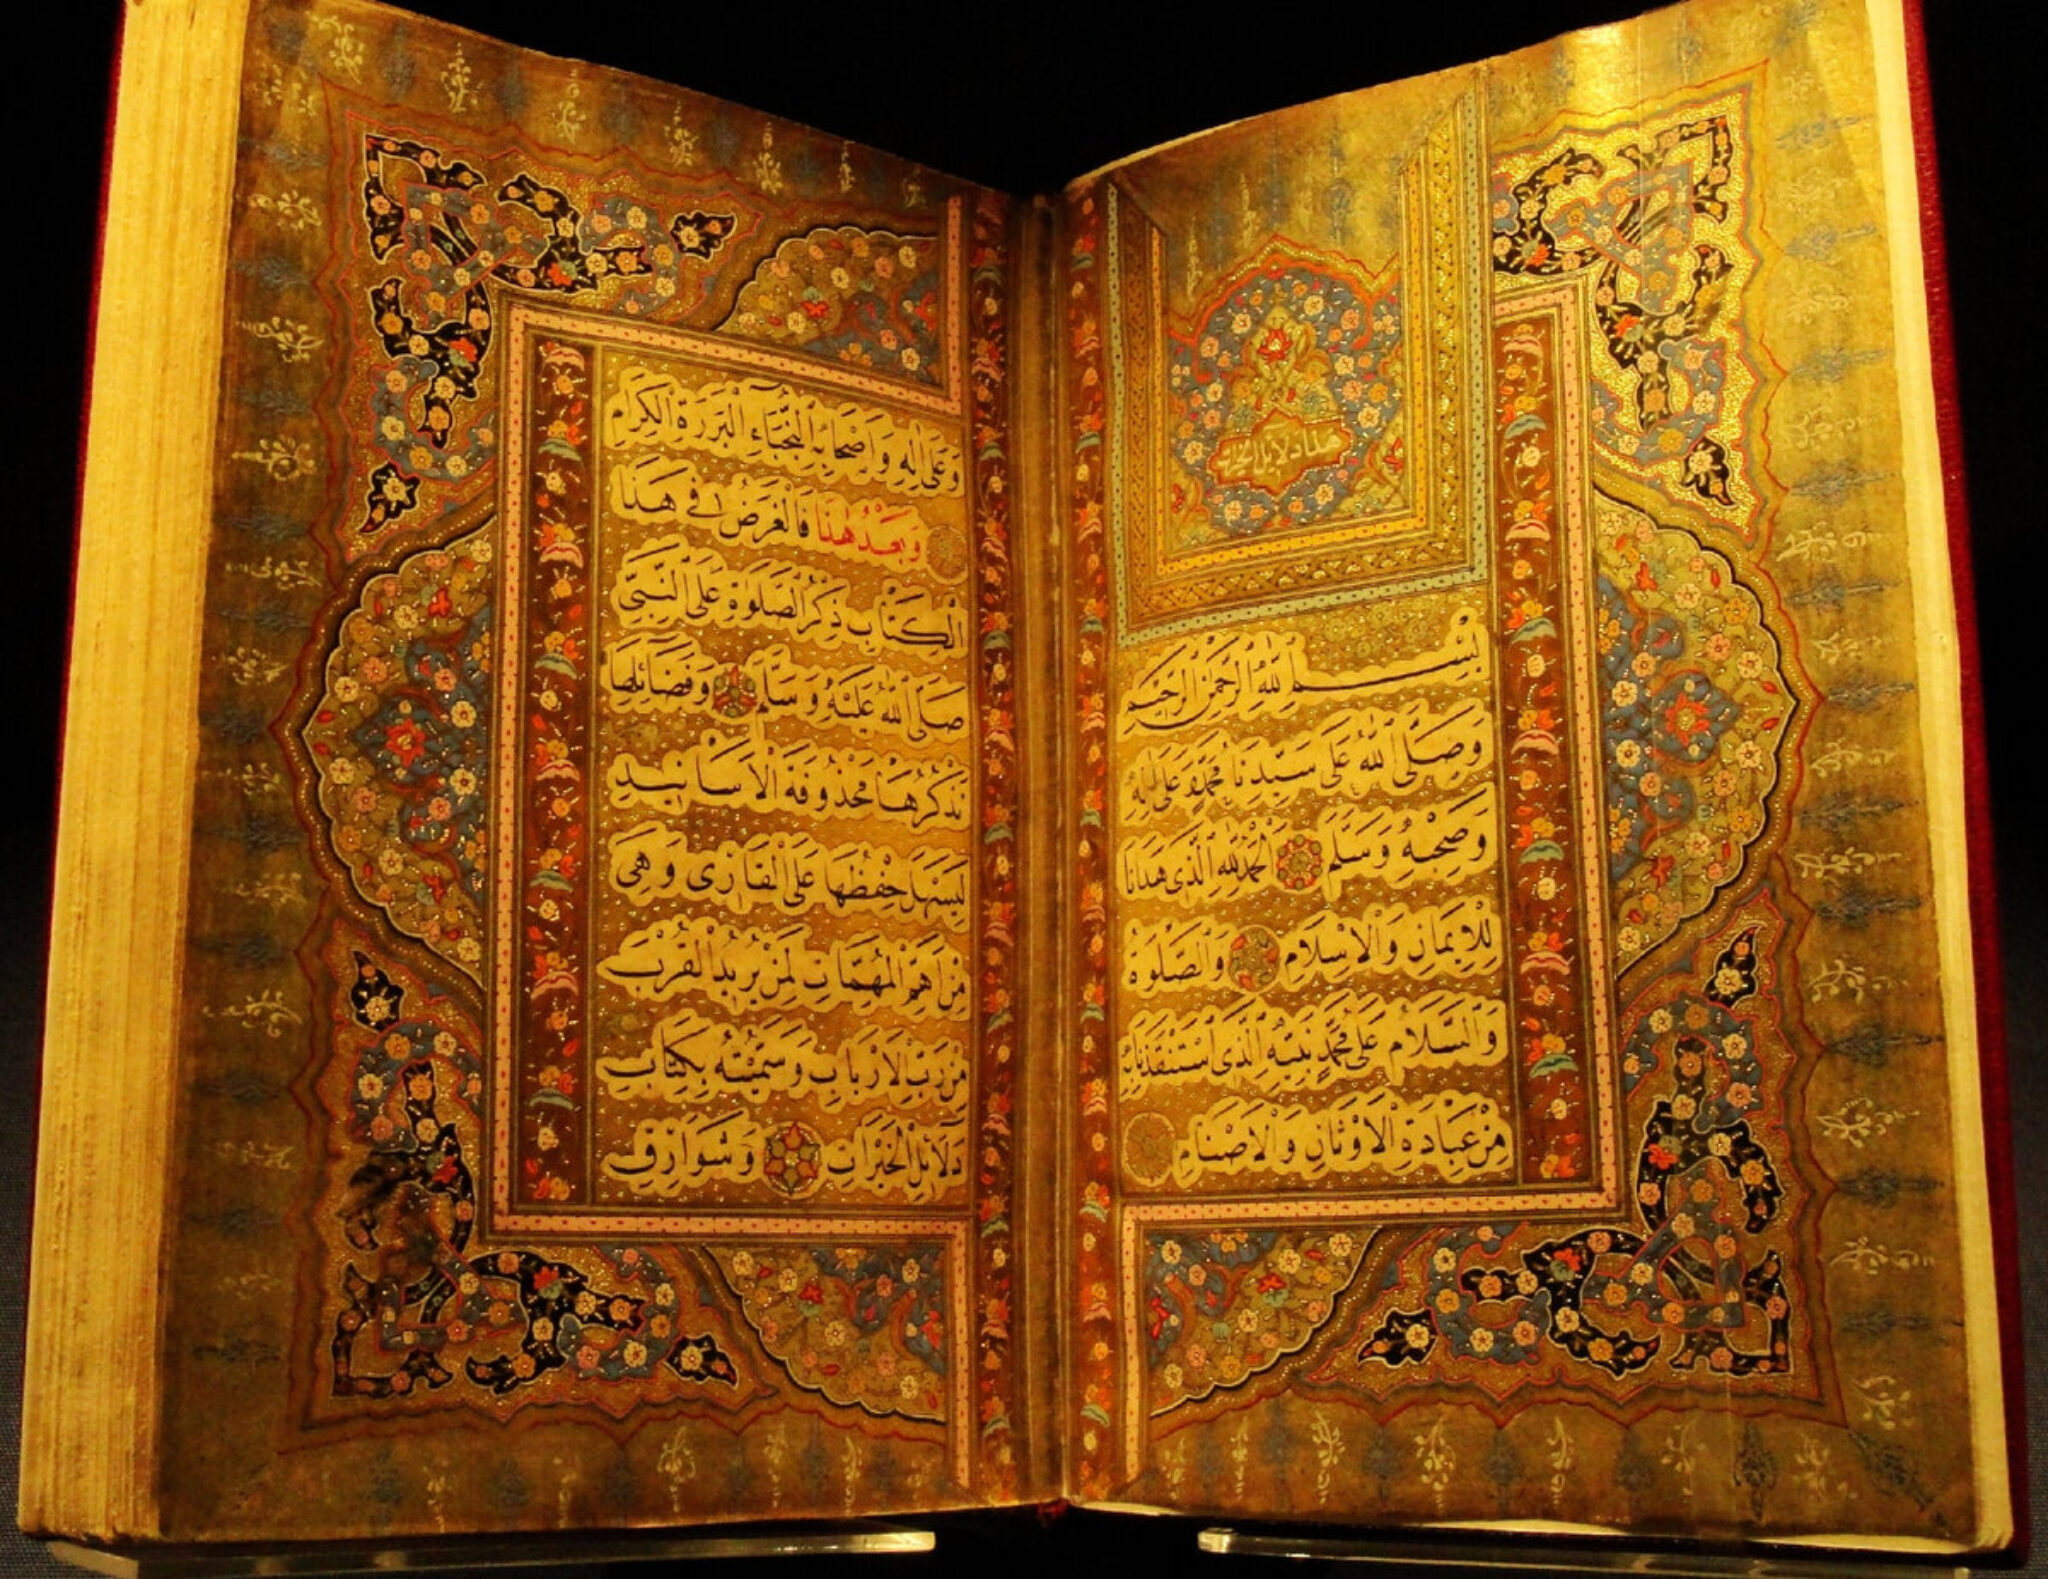 هذا دلايل الخيرات
بِسْمِ اللّٰهِ الرَّحْمٰنِ الرَّحِيمِ
وَصَلَّى اللّٰهُ عَلَى سَيِّدِنَا مُحَمَّدٍ وَعَلَى اٰلِهِ
وَصَحْبِهِ وَسَلَّمَ اَلْحَمْدُ لِلّٰهِ الَّذِى هَدَانَا
لِلْاِيمَانِ وَالْاِسْلَامِ وَالصَّلٰوةُ
وَالسَّلَامُ عَلَى مُحَمَّدٍ نَبِيِّهِ الَّذِى اسْتَنْقَذَنَا بِهِ
مِنْ عِبَادَةِ الْاَوْثَانِ وَالْاَصْنَامِ
وَعَلَى اٰلِهِ وَاَصْحَابِهِ النُّجَبَاءِ الْبَرَرَةِ الْكِرَامِ
وَبَعْدُ هٰذَا فَالْغَرَضُ فِى هٰذَا
الْكِتَابِ ذِكْرُ الصَّلٰوةِ عَلَى النَّبِيِّ
صَلَّى اللّٰهُ عَلَيْهِ وَسَلَّمَ وَفَضَائِلِهَا
نَذْكُرُهَا مَحْذُوفَةَ الْاَسَانِيدِ
لِيَسْهَلَ حِفْظُهَا عَلَى الْقَارِى وَهِىَ
مِنْ اَهَمِّ الْمُهِمَّاتِ لِمَنْ يُرِيدُ الْقُرْبَ
مِنْ رَبِّ الْاَرْبَابِ وَسَمَّيْتُهُ بِكِتَابِ
دَلَائِلِ الْخَيْرَاتِ وَشَوَارِقِ